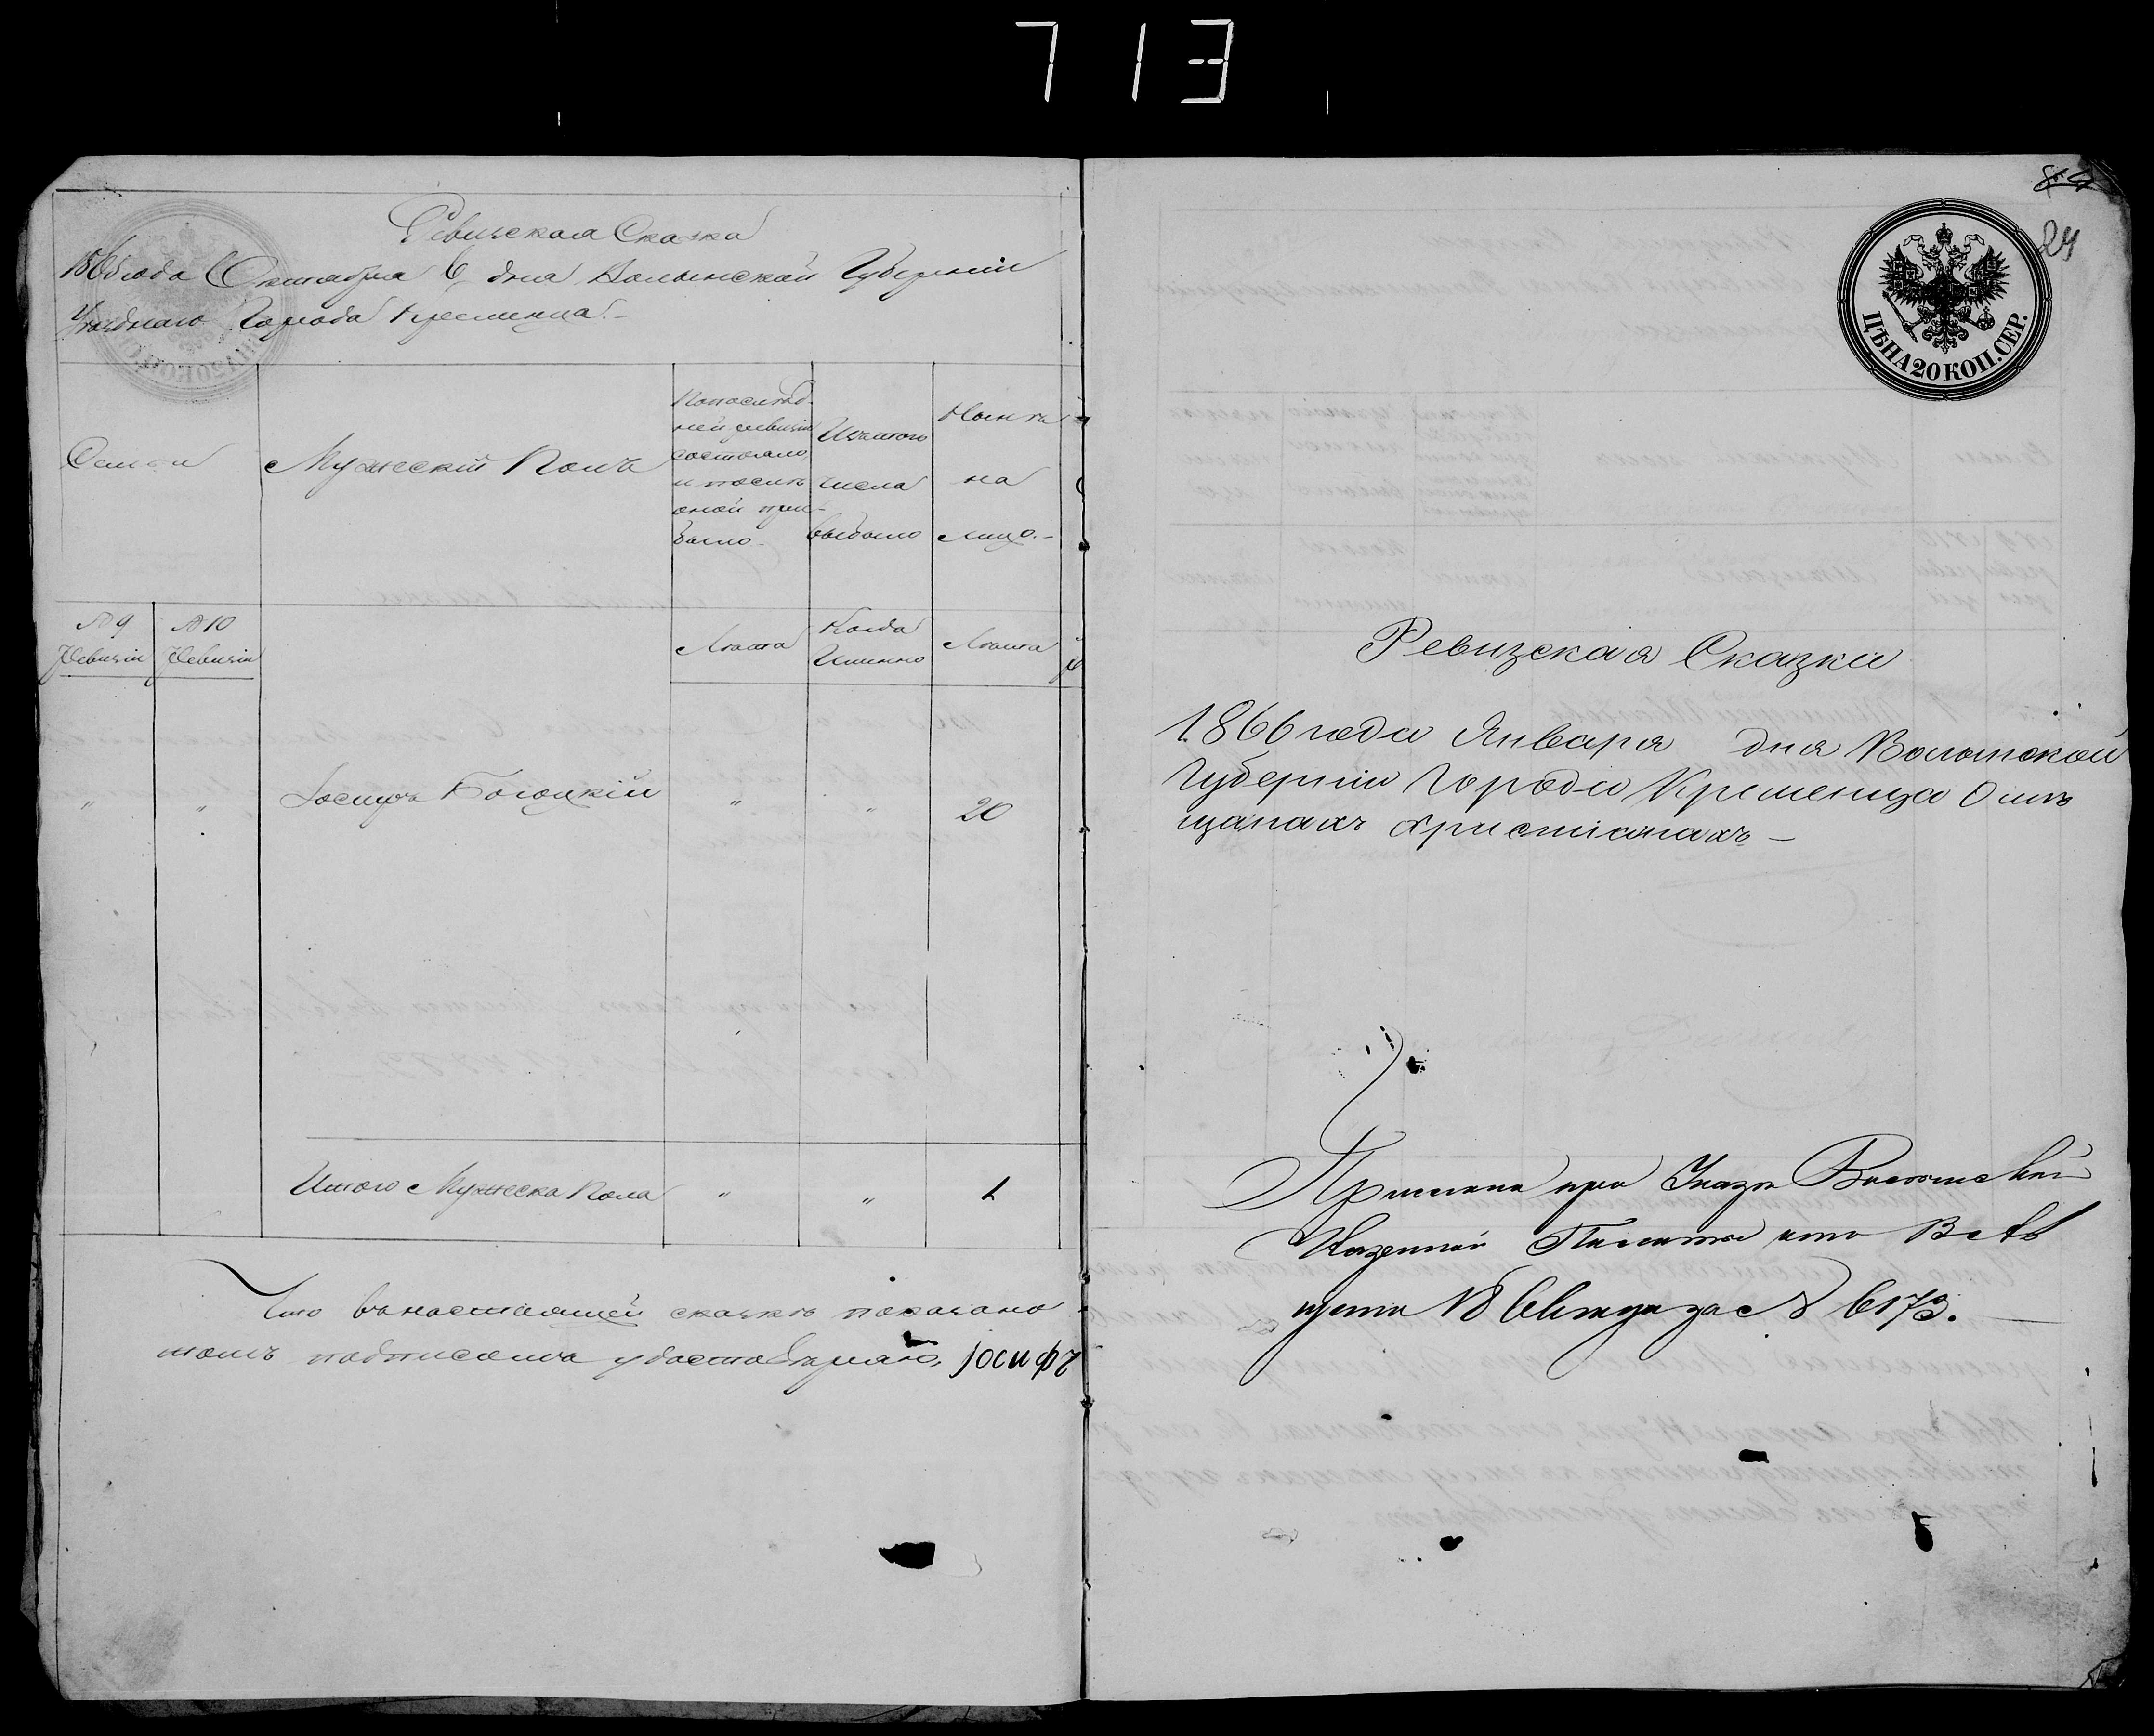 713
Ревизская Сказка
186 года Октября 6 дня Волынской Губерніи
Уѣзднаго Города Кременца.-
Семьи
Мужескій Полъ
По послѣд-
ней ревизіи
состояло
и послѣ
оной при-
было
Изъ того
числа
выбыло
Нынѣ
на
лицо.-
№ 9
Ревизіи
№ 10
Ревизіи
Лѣта
Когда
Именно
Лѣта
" " Іосифъ " " 20
Итого Мужеска Пола " " 1
Что въ настоящей сказкѣ показано
томъ подписомъ удостовѣряю, Іосифъ
24
ЦѢНА 20 КОП. СЕР.
Ревизская Сказка
1866 года Января дня Волынской
Губерніи Города Кременца О мѣ
щанахъ христіанахъ —
Прислана при Указѣ Волынской
Казенной Палаты отъ
18 за № 6173.